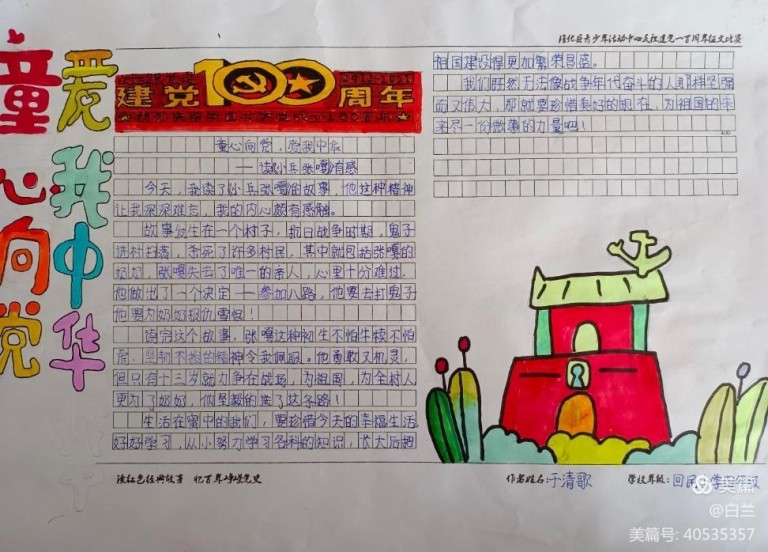 童心向党
爱我中华
建党100周年
童心向党，爱我中华
——读《小兵张嘎》有感
今天，我读了《小兵张嘎》的故事，他这种精神
让我深深难忘，我的内心颇有感触。
故事发生在一个村子，抗日战争时期，鬼子
进村扫荡，杀死了许多村民，其中就包括张嘎的
奶奶，张嘎失去了唯一的亲人，心里十分难过，
他做出了一个决定——参加八路，他要去打鬼子
他要为奶奶报仇雪恨！
读完这个故事，张嘎这种初生不怕牛犊不怕
虎、坚韧不拔的精神令我佩服。他勇敢又机灵，
但只有十三岁就力争在战场，为祖国，为全村人
更为了奶奶，他坚毅的走了这条路！
生活在蜜中的我们，要珍惜今天的幸福生活，
好好学习，从小努力学习各科的知识，长大后把
青少年活动中心庆祝建党一百周年征文比赛
祖国建设得更加繁荣昌盛。
我们既然无法像战争年代奋斗的人那样坚强
而又伟大，那就要珍惜美好的现在，为祖国的未
来尽一份微薄的力量吧！
读红色经典故事 忆百年峥嵘党史
作者姓名：于清歌
学校年级：回民小学
美篇
@白兰
美篇号: 40535357